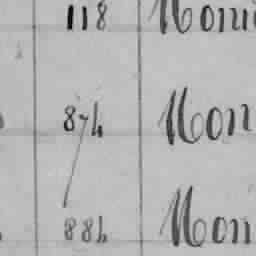 118 Moni
874 Mon
884 Mon